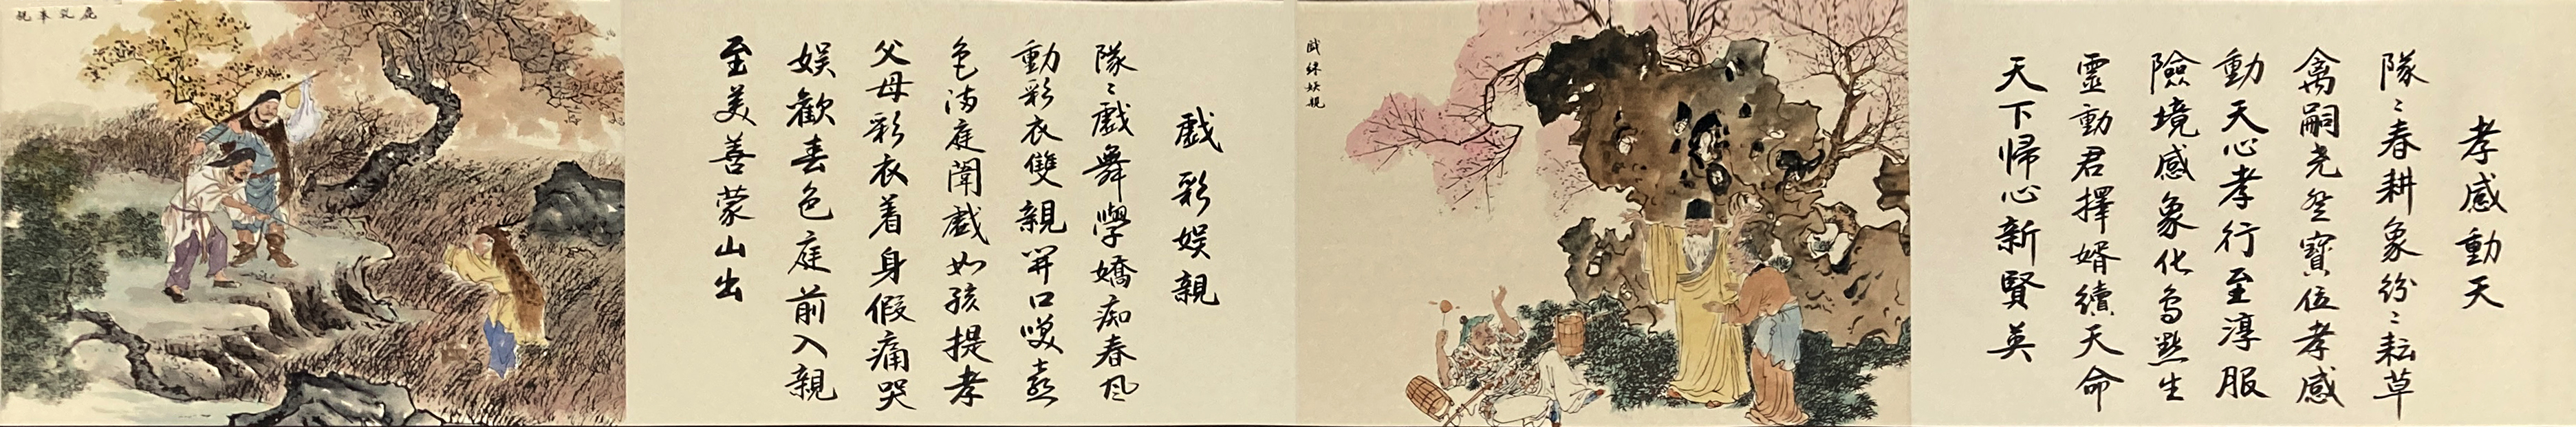 孝感動天
隊〻春耕象紛〻耘草
禽嗣堯登寶位孝感
動天心孝行至淳服
險境感象化鳥點生
靈動君擇婿續天命
天下歸心新賢英
戲綵娱親
戲彩娱親
隊〻戲舞學嬌痴春風
動彩衣雙親開口笑喜
色满庭闈戲如孩提孝
父母彩衣着身假痛哭
娱歡喜色庭前入親
至美善蒙山出
鹿乳奉親